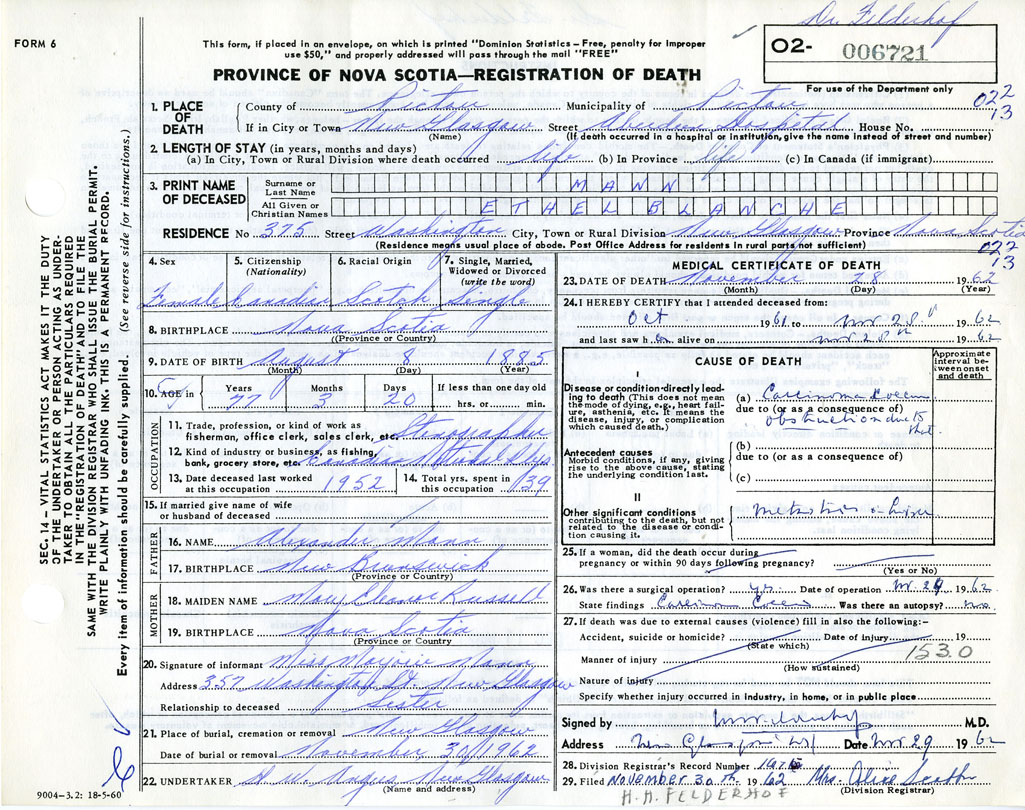 Dr. Felderhof
FORM 6
This form, if placed in an envelope, on which is printed "Dominion Statistics – Free, penalty for improper
use $50," and properly addressed will pass through the mail "FREE"
O2- 006721
For use of the Department only
PROVINCE OF NOVA SCOTIA—REGISTRATION OF DEATH
022
13
1. PLACE OF DEATH
County of Pictou Municipality of Pictou
If in City or Town New Glasgow Street Aberdeen Hospital House No.
(Name) (If death occurred in a hospital or institution, give the name instead of street and number)
2. LENGTH OF STAY (in years, months and days)
(a) In City, Town or Rural Division where death occurred life (b) In Province life (c) In Canada (if immigrant)
3. PRINT NAME OF DECEASED
Surname or Last Name MANN
All Given or Christian Names ETHEL BLANCHE
RESIDENCE No 375 Street Washington City, Town or Rural Division New Glasgow Province Nova Scotia
(Residence means usual place of abode. Post Office Address for residents in rural parts not sufficient)
022
13
4. Sex
5. Citizenship (Nationality)
6. Racial Origin
7. Single, Married, Widowed or Divorced (write the word)
Female Canadian Scotch Single
8. BIRTHPLACE Nova Scotia
(Province or Country)
9. DATE OF BIRTH August 8 1885
(Month) (Day) (Year)
10. AGE in
Years 77
Months 3
Days 20
If less than one day old
hrs. or min.
OCCUPATION
11. Trade, profession, or kind of work as fisherman, office clerk, sales clerk, etc. Stenographer
12. Kind of industry or business, as fishing, bank, grocery store, etc. Canadian National Rlys
13. Date deceased last worked at this occupation 1952
14. Total yrs. spent in this occupation 39
15. If married give name of wife or husband of deceased
FATHER
16. NAME Alexander Mann
17. BIRTHPLACE New Brunswick
(Province or Country)
MOTHER
18. MAIDEN NAME Mary Eleanor Russell
19. BIRTHPLACE Nova Scotia
(Province or Country)
20. Signature of informant Miss Marjorie Mann
Address 357 Washington St. New Glasgow
Relationship to deceased Sister
21. Place of burial, cremation or removal New Glasgow
Date of burial or removal November 30/1962
22. UNDERTAKER H. W. Angus New Glasgow
(Name and address)
MEDICAL CERTIFICATE OF DEATH
23. DATE OF DEATH November 28 1962
(Month) (Day) (Year)
24. I HEREBY CERTIFY that I attended deceased from:
Oct 1961 to Nov 28th 1962
and last saw h er alive on Nov 28th 1962
CAUSE OF DEATH
Approximate interval between onset and death
I
Disease or condition directly leading to death (This does not mean the mode of dying, e.g., heart failure, asthenia, etc. It means the disease, injury, or complication which caused death.)
(a) Carcinoma Cecum
due to (or as a consequence of)
obstruction due to that
Antecedent causes
Morbid conditions, if any, giving rise to the above cause, stating the underlying condition last.
(b)
due to (or as a consequence of)
(c)
II
Other significant conditions contributing to the death, but not related to the disease or condition causing it.
25. If a woman, did the death occur during pregnancy or within 90 days following pregnancy?
(Yes or No)
26. Was there a surgical operation? yes Date of operation Nov. 24 1962
State findings Carcinoma Cecum Was there an autopsy? no
27. If death was due to external causes (violence) fill in also the following:-
Accident, suicide or homicide? Date of injury 19
(State which)
153.0
Manner of injury
(How sustained)
Nature of injury
Specify whether injury occurred in industry, in home, or in public place
Signed by M.D.
Address New Glasgow NS Date Nov 29 1962
28. Division Registrar's Record Number
29. Filed November 30th 1962 Mrs. Alice
(Division Registrar)
H.H. FELDERHOF
SEC. 14 – VITAL STATISTICS ACT MAKES IT THE DUTY
OF THE UNDERTAKER OR PERSON ACTING AS UNDER-
TAKER TO OBTAIN ALL THE PARTICULARS REQUIRED
IN THE "REGISTRATION OF DEATH" AND TO FILE THE
SAME WITH THE DIVISION REGISTRAR WHO SHALL ISSUE THE BURIAL PERMIT.
WRITE PLAINLY WITH UNFADING INK. THIS IS A PERMANENT RECORD.
Every item of information should be carefully supplied. (See reverse side for instructions.)
9004-3.2: 18-5-60